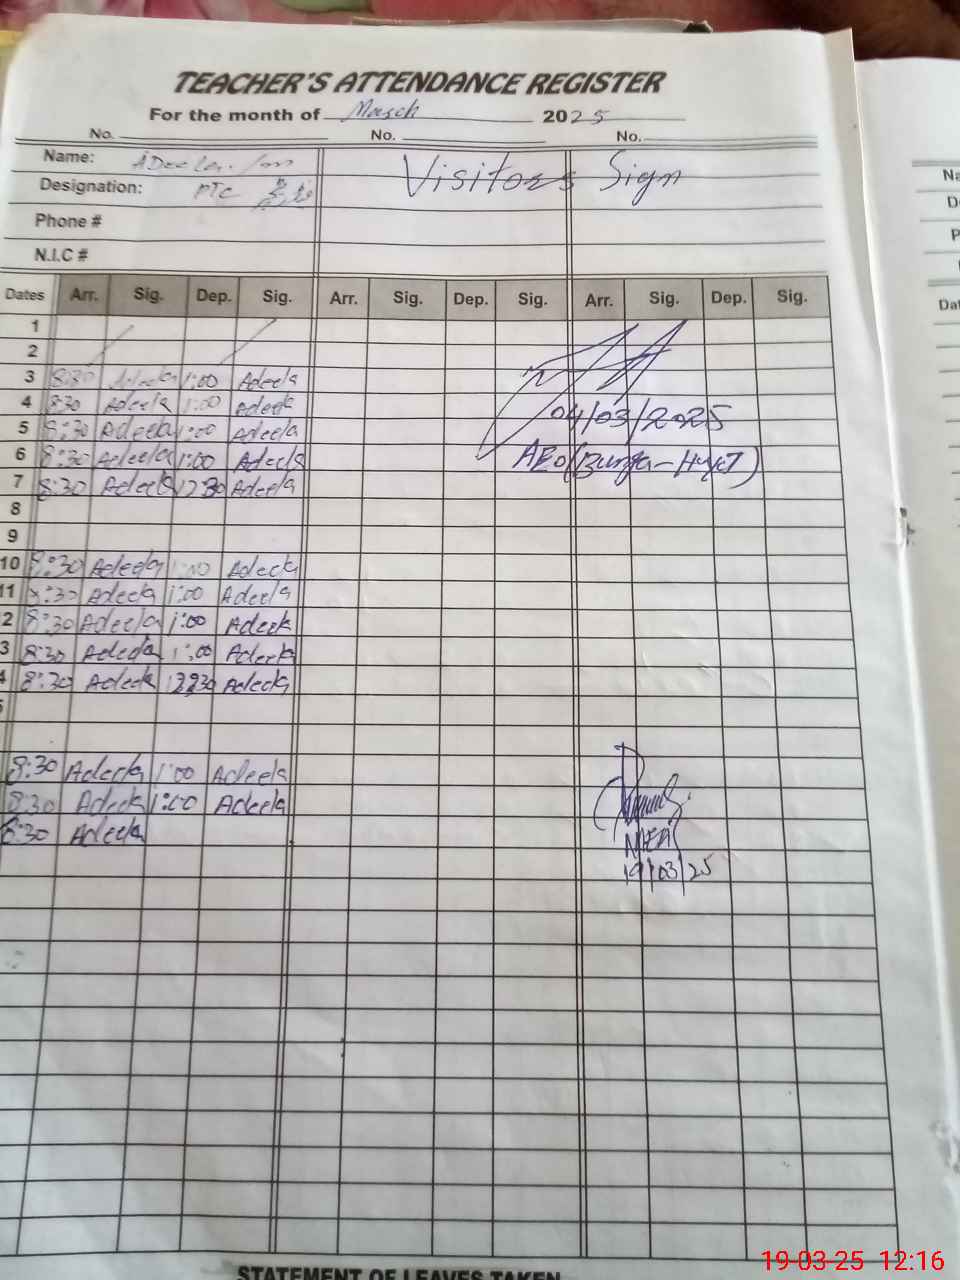 TEACHER'S ATTENDANCE REGISTER
For the month of March 2025
No. No. No.
Name: Visitors Sign
Designation: PTC
Phone #
N.I.C #
Dates Arr. Sig. Dep. Sig. Arr. Sig. Dep. Sig. Arr. Sig. Dep. Sig.
1
2
3 8:30 Adeela 1:00 Adeela
4 8:30 Adeela 1:00 Adeela 04/03/2025
5 8:30 Adeela 1:00 Adeela
6 8:30 Adeela 1:00 Adeela AEO
7 8:30 Adeela 12:30 Adeela
8
9
10 8:30 Adeela 1:00 Adeela
11 8:30 Adeela 1:00 Adeela
2 8:30 Adeela 1:00 Adeela
3 8:30 Adeela 1:00 Adeela
4 8:30 Adeela Adeela
8:30 Adeela 1:00 Adeela
8:30 Adeela 1:00 Adeela
8:30 Adeela
MEA
19/03/25
STATEMENT OF LEAVES TAKEN
Na
D
P
Dat
19-03-25 12:16